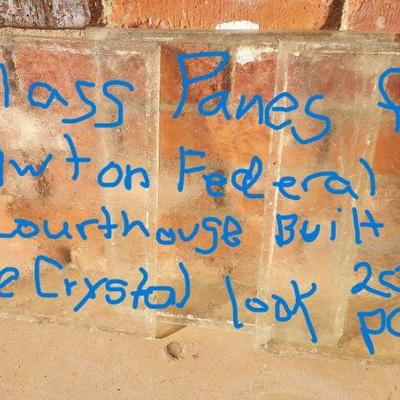 lass Panes f
wton Federal
ourthouse Built
e Crystal look 2
po